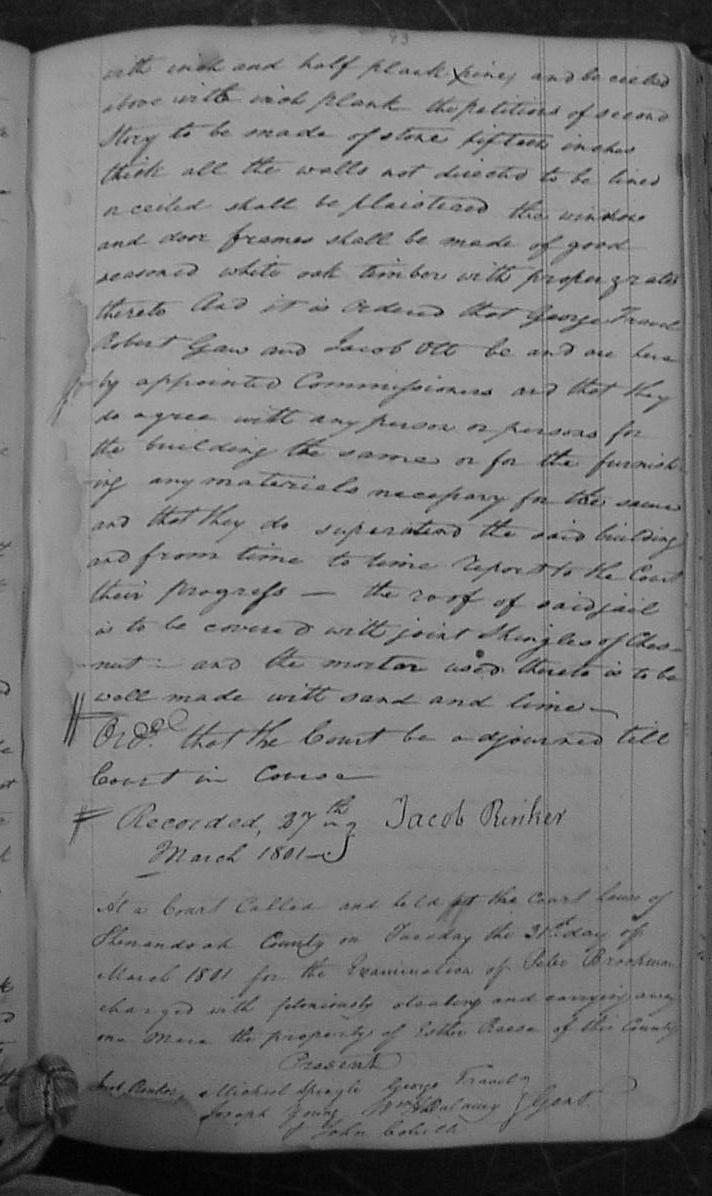 93
with inch and half plank pine, and be ceiled
above with inch plank the petitions of second
Story to be made of stone fifteen inches
thick all the walls not directed to be lined
or ceiled shall be plaistered the window
and door frames shall be made of good
seasoned white oak timber with proper grates
thereto And it is ordered that George Fravel
Robert Gaw and Jacob Ott be and are here
by appointed Commissioners and that they
do agree with any person or persons for
the building the same or for the furnish
ing any materials necessary for the same
and that they do superintend the said building
and from time to time report to the Court
their progress — the roof of said jail
is to be covered with joint Shingles of Ches-
nut — and the mortar used thereto is to be
well made with sand and lime —
Ord. that the Court be adjourned till
Court in Course
Recorded, 27th Jacob Rinker
March 1801
At a Court Called and held at the Court house of
Shenandoah County on Tuesday the 31st day of
March 1801 for the Examination of Peter Brookman
charged with feloniously stealing and carrying away
one Mare the property of Esther Reese of this County
Present
Michael Speagle George Fravel
Joseph Young Gent.
John